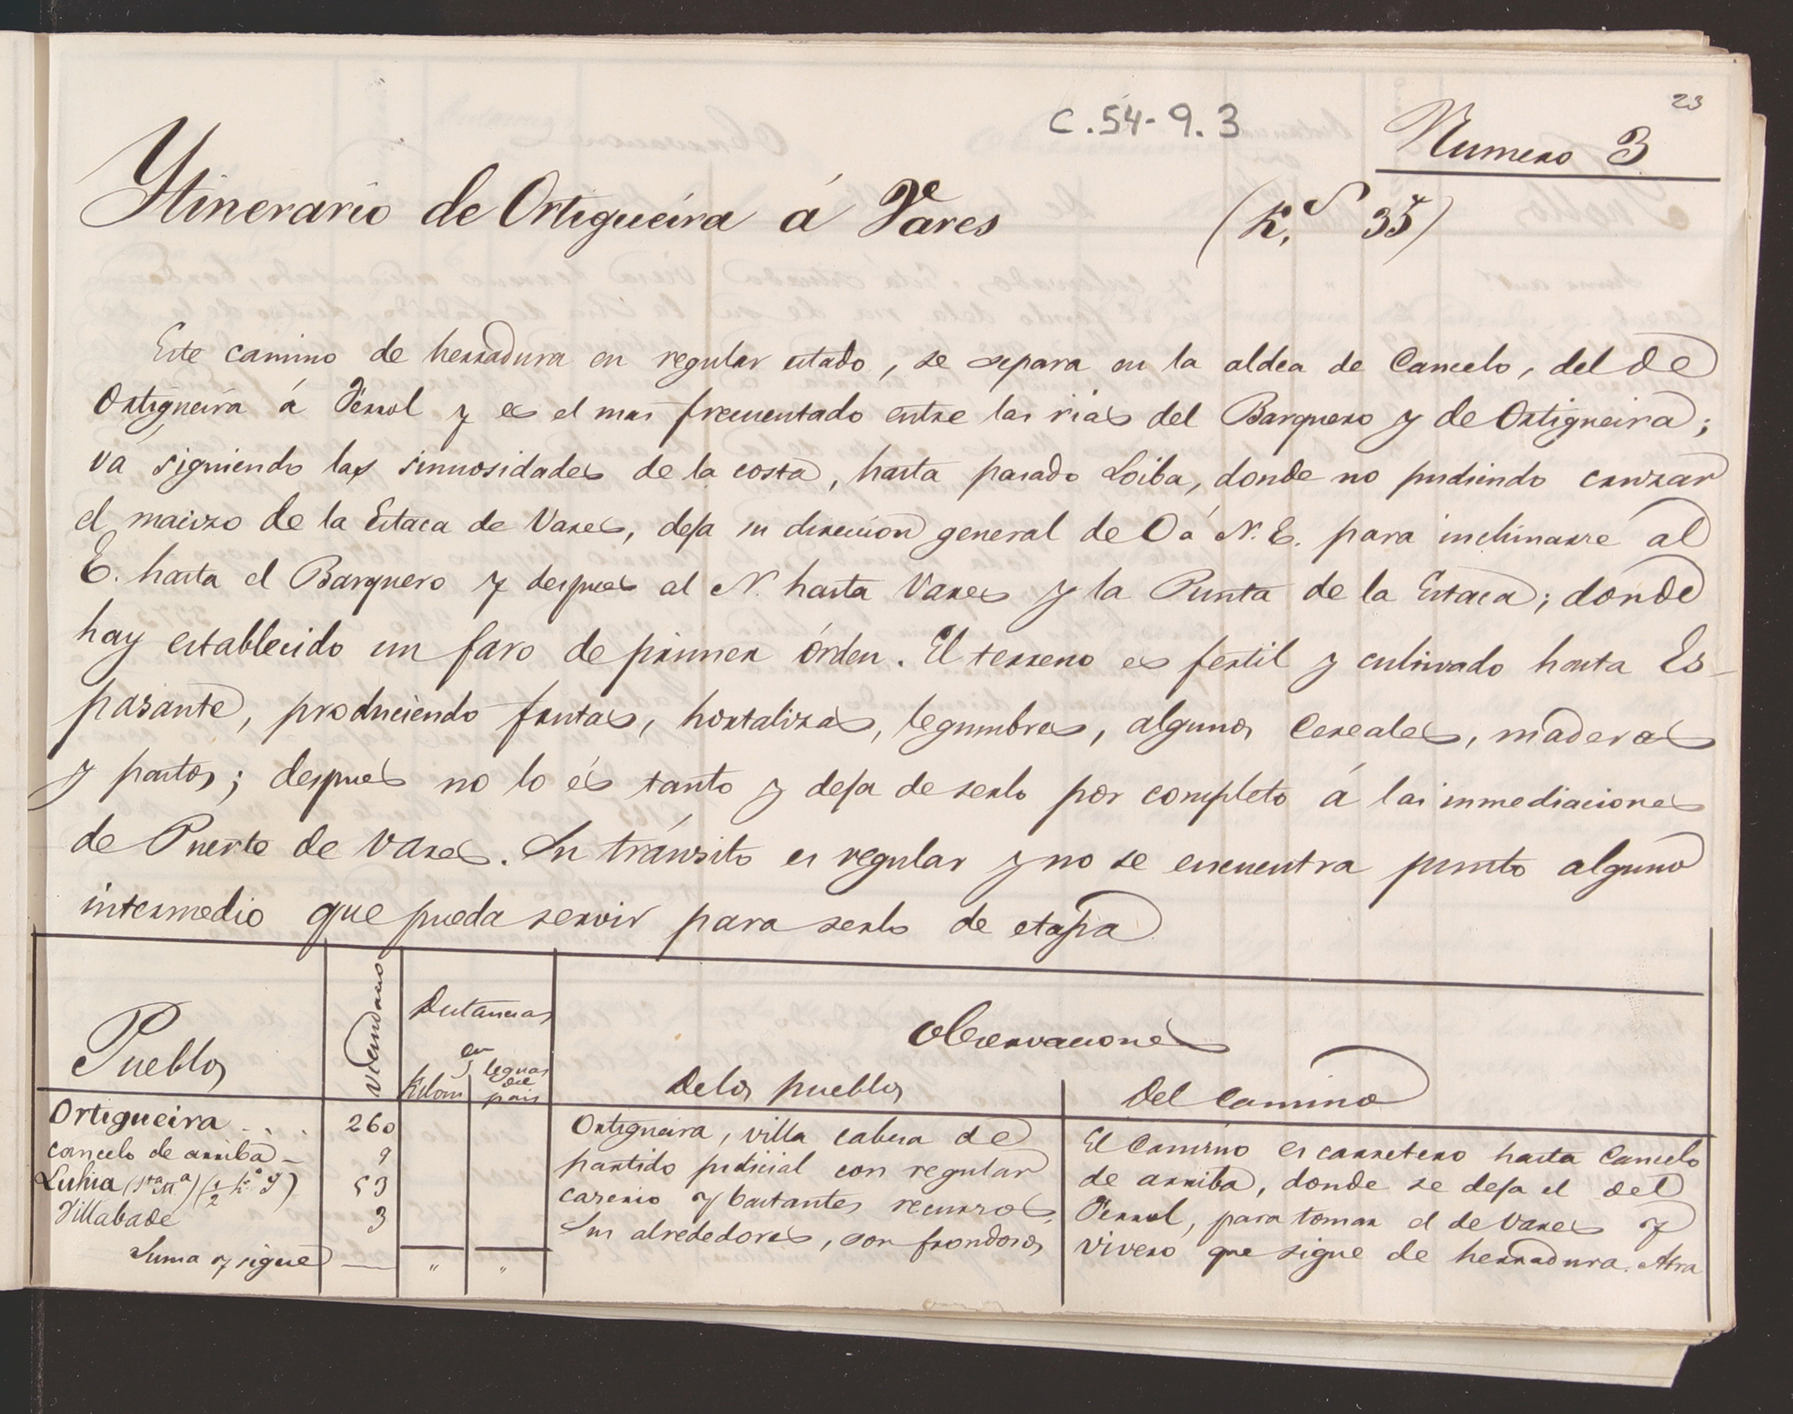 23
C.54-9.3
Numero 3
Ytinerario de Ortigueira á Vares (K.s 35)
Este camino de herradura en regular estado, se separa en la aldea de Cancelo, del de
Ortigueira á Ferrol y es el mas frecuentado entre las rias del Barquero y de Ortigueira;
vá siguiendo las sinuosidades de la costa, hasta pasado Loiba, donde no pudiendo cruzar
el macizo de la Estaca de Vares, deja su direccion general de O á N.E. para inclinarse al
E. hasta el Barquero y despues al N. hasta Vares y la Punta de la Estaca; donde
hay establecido un faro de primer órden. El terreno es fertil y cultivado hasta Es-
pasante, produciendo frutas, hortalizas, legumbres, algunos cereales, maderas
y pastos; despues no lo és tanto y deja de serlo por completo á las inmediaciones
de Puerto de Vares. Su tránsito es regular y no se encuentra punto alguno
intermedio que pueda servir para serlo de etapa
Pueblos
Vecindario
Distancias
en
Kilom
leguas
del
pais
Observaciones
De los pueblos
Del camino
Ortigueira . . . 260
Cancelo de arriba - 9
Luhia (Sta Ma) (1/2 k. Y) 53
Villabade 3
Suma y sigue — " "
Ortigueira, villa cabeza de
partido judicial con regular
caserio y bastantes recursos.
Sus alrededores, son frondosos
El camino es carretero hasta Cancelo
de arriba, donde se deja el del
Ferrol, para tomar el de Vares y
Vivero que sigue de herradura. Atra